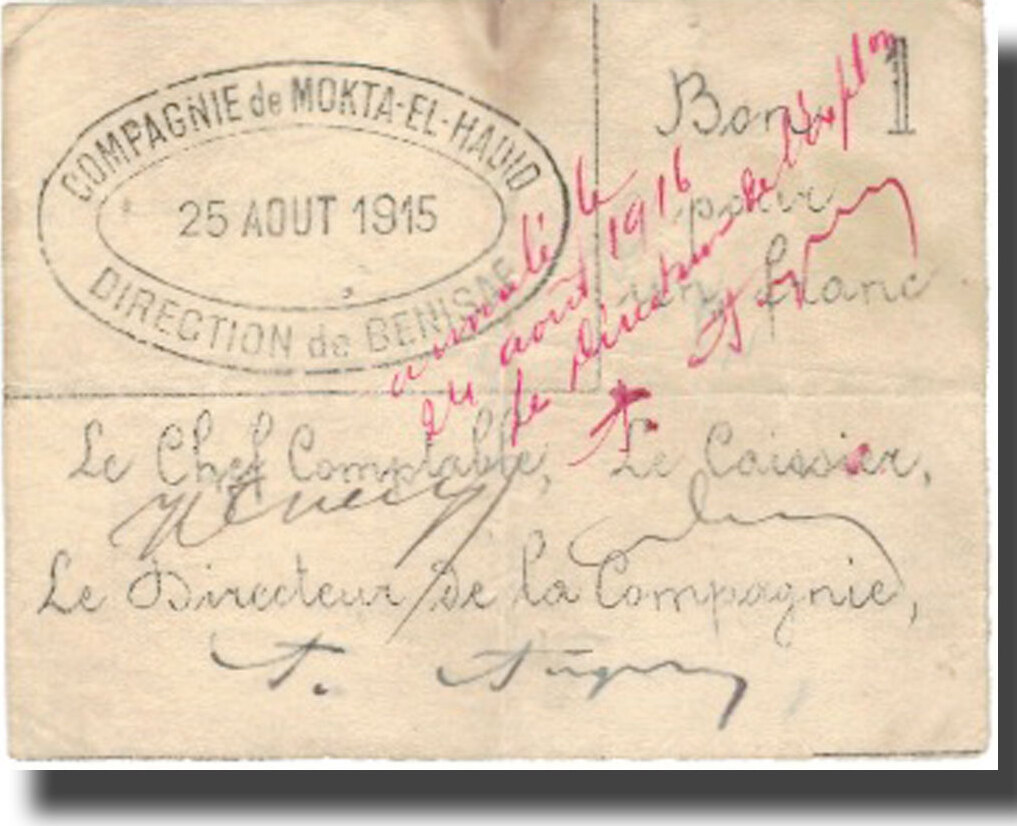 COMPAGNIE de MOKTA-EL-HADID
25 AOUT 1915
DIRECTION de BENISAF
Bon
1
pour
un franc
annulé le
24 août 1916
Le Directeur de l'Expl^on
Le Chef Comptable, Le Caissier,
Le Directeur de la Compagnie,